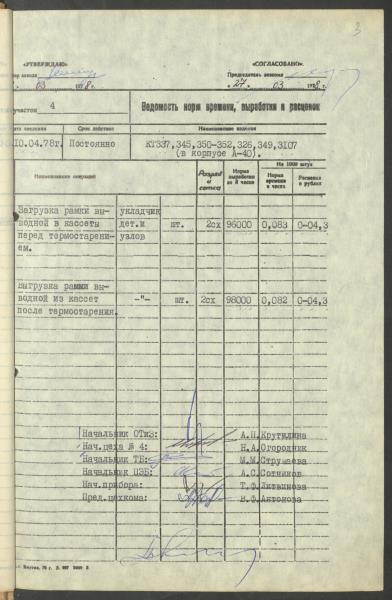 «УТВЕРЖДАЮ» «СОГЛАСОВАНО»
завода Председатель завкома
03 1978г. «27» 03 1978г.
участок 4 Ведомость норм времени, выработки и расценок
введения Срок действия Наименование изделия
10.04.78г. Постоянно КТ337,345,350-352,326,349,3107
(в корпусе А-40).
На 1000 штук
Наименование операций Разряд и сетка Норма выработки за 8 часов Норма времени в часах Расценка в рублях
Загрузка рамки вы- укладчик
водной в кассеты дет.и шт. 2сх 96000 0,083 0-04,3
перед термостарени- узлов
ем.
Выгрузка рамки вы-
водной из кассет -"- шт. 2сх 98000 0,082 0-04,3
после термостарения.
Начальник ОТиЗ: А.Н.Крутилина
Нач.цеха № 4: Н.А.Огородник
Начальник ТБ: М.М.Струнаева
Начальник ПЭБ: А.С.Сотников
Нач.прибора: Т.Ф.Литвинова
Пред.цехкома: В.Ф.Антонова